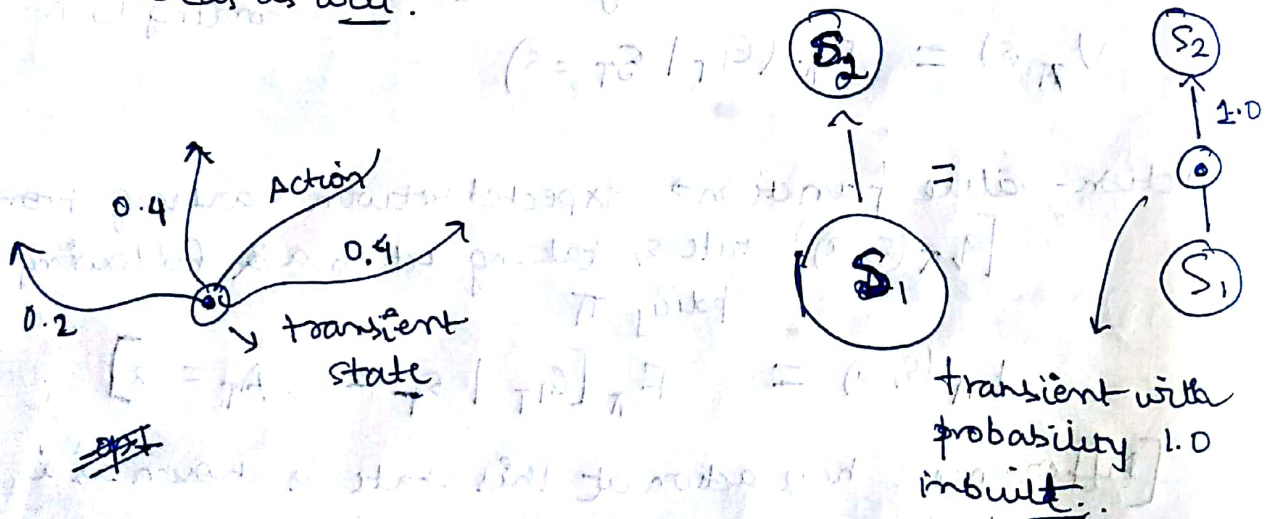 S2
S2
1.0
Action
0.4
0.4
=
0.2
transient
state
S1
S1
transient with
probability 1.0
inbuilt.